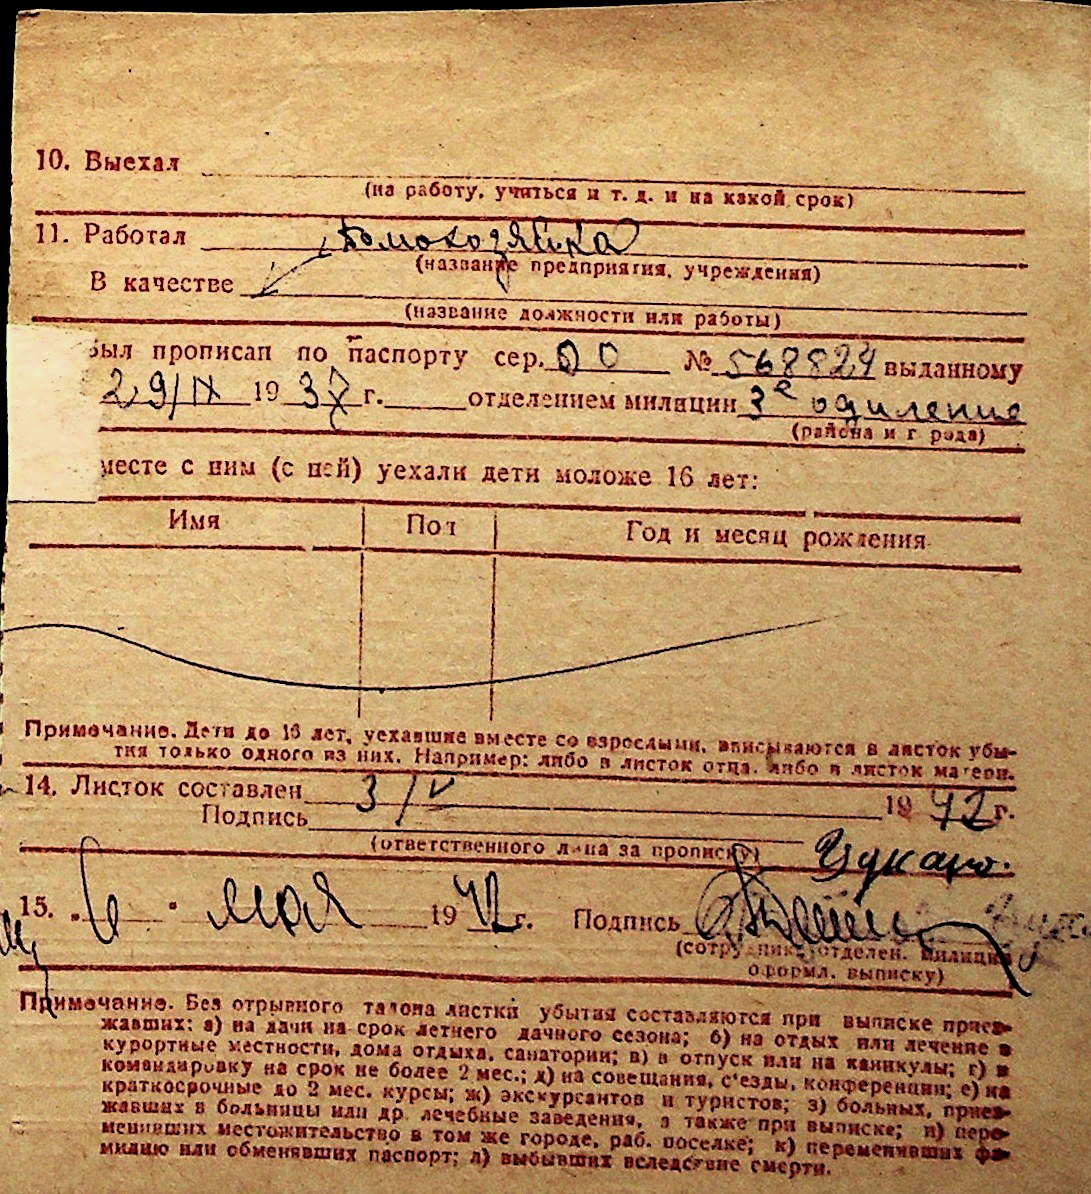 10. Выехал
(на работу, учиться и т. д. и на какой срок)
11. Работал Домохозяйка
(название предприятия, учреждения)
В качестве
(название должности или работы)
был прописан по паспорту сер. № 568824 выданному
29/IX 1937 г. отделением милиции 3е одиление
(района и города)
месте с ним (с ней) уехали дети моложе 16 лет:
Имя Пол Год и месяц рождения
Примечание. Дети до 16 лет, уехавшие вместе со взрослыми, вписываются в листок убы-
тия только одного из них. Например: либо в листок отца, либо в листок матери.
14. Листок составлен 3/V 1942 г.
Подпись
(ответственного лица за прописку)
15. „6" мая 1942 г. Подпись
(сотрудника отделен. милиции
оформл. выписку)
Примечание. Без отрывного талона листки убытия составляются при выписке приез-
жавших: а) на дачи на срок летнего дачного сезона; б) на отдых или лечение в
курортные местности, дома отдыха, санатории; в) в отпуск или на каникулы; г) в
командировку на срок не более 2 мес.; д) на совещания, с'езды, конференции; е) на
краткосрочные до 2 мес. курсы; ж) экскурсантов и туристов; з) больных, приез-
жавших в больницы или др. лечебные заведения, а также при выписке; и) пере-
менивших местожительство в том же городе, раб. поселке; к) переменивших фа-
милию или обменявших паспорт; л) выбывших вследствие смерти.